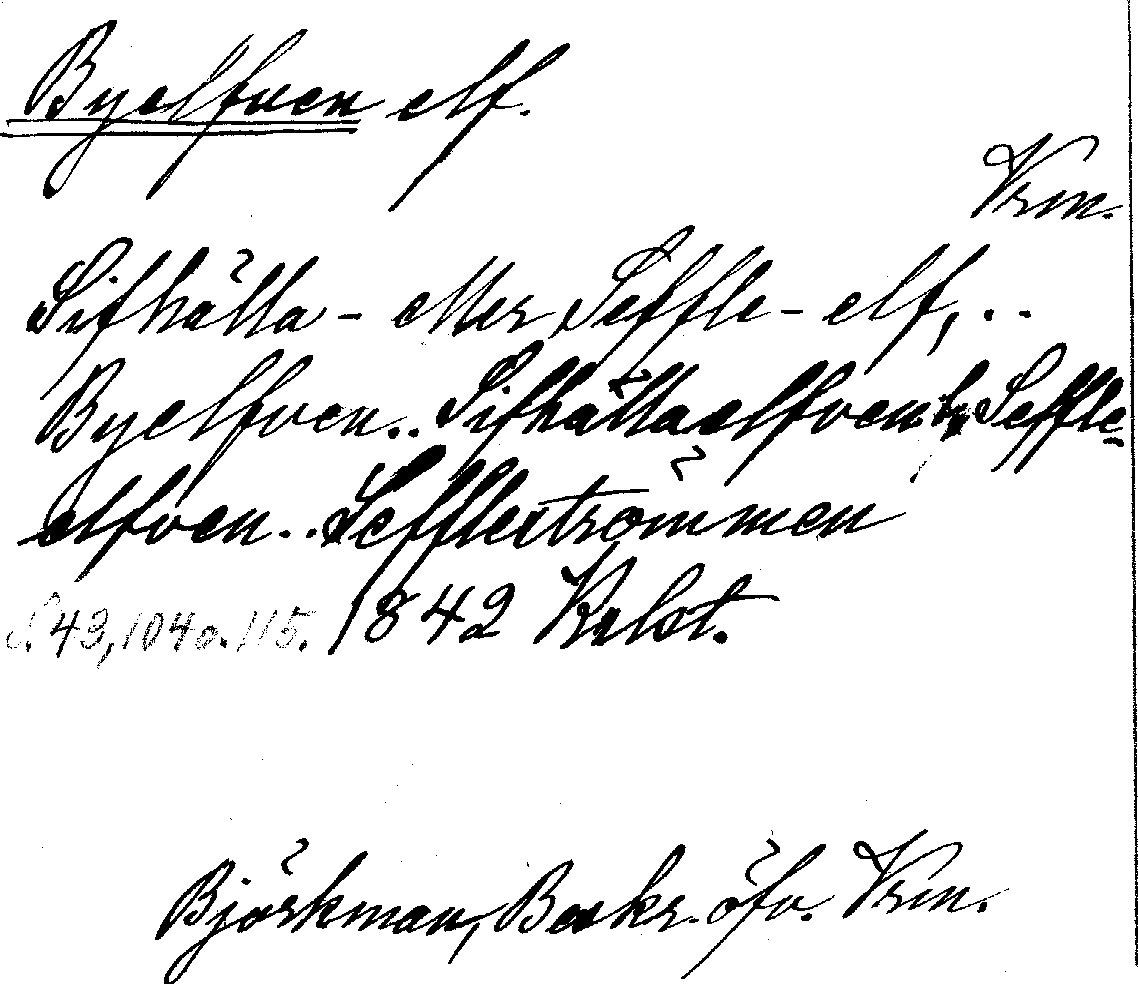 Byelfven elf.
Vrm.
Sifhälla- eller Seffle-elf, ..
Byelfven.. Sifhällaelfven Seffle-
elfven.. Sefflestrommen
S. 43, 104 o. 115. 1842
Björkman, Beskr. öfv. Vrm.